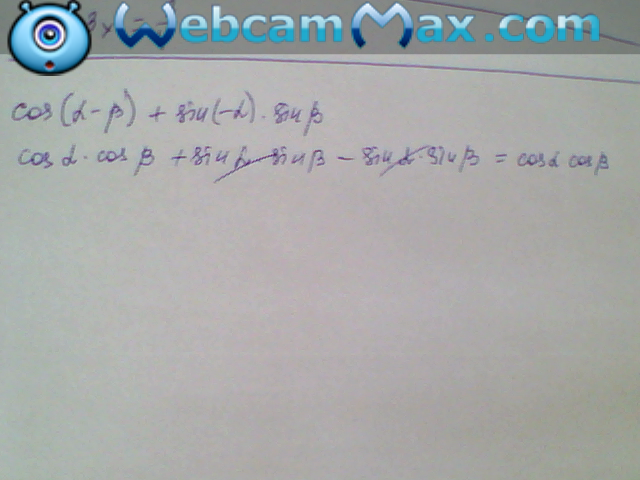 WebcamMax.com
cos(α-β) + sin(-α) · sin β
cos α · cos β + sin α · sin β - sin α · sin β = cos α cos β